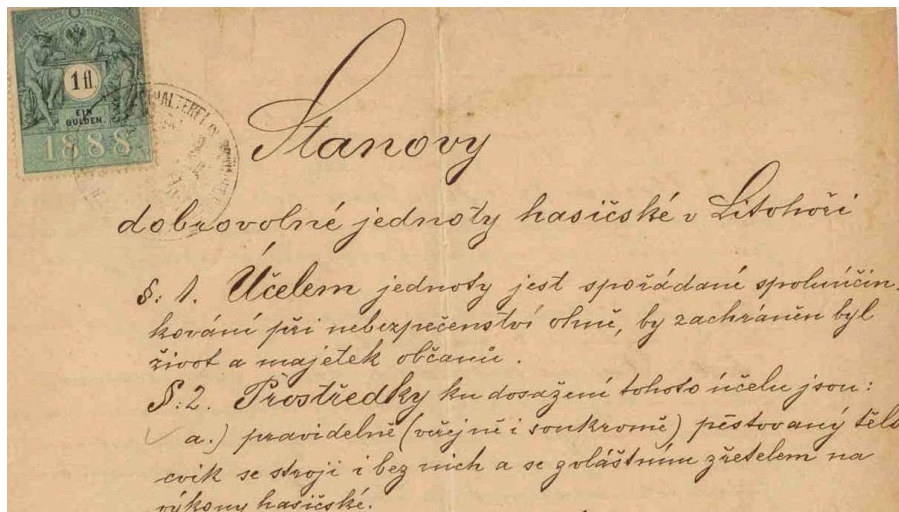 1 fl.
EIN
GULDEN.
1888
Stanovy
dobrovolné jednoty hasičské v Litohoři
§: 1. Účelem jednoty jest spořádané spoluúčin-
kování při nebezpečenství ohně, by zachráněn byl
život a majetek občanů.
§: 2. Prostředky ku dosažení tohoto účelu jsou:
a.) pravidelně (veřejně i soukromě) pěstovaný tělo
cvik se stroji i bez nich a se zvláštním zřetelem na
výkony hasičské.